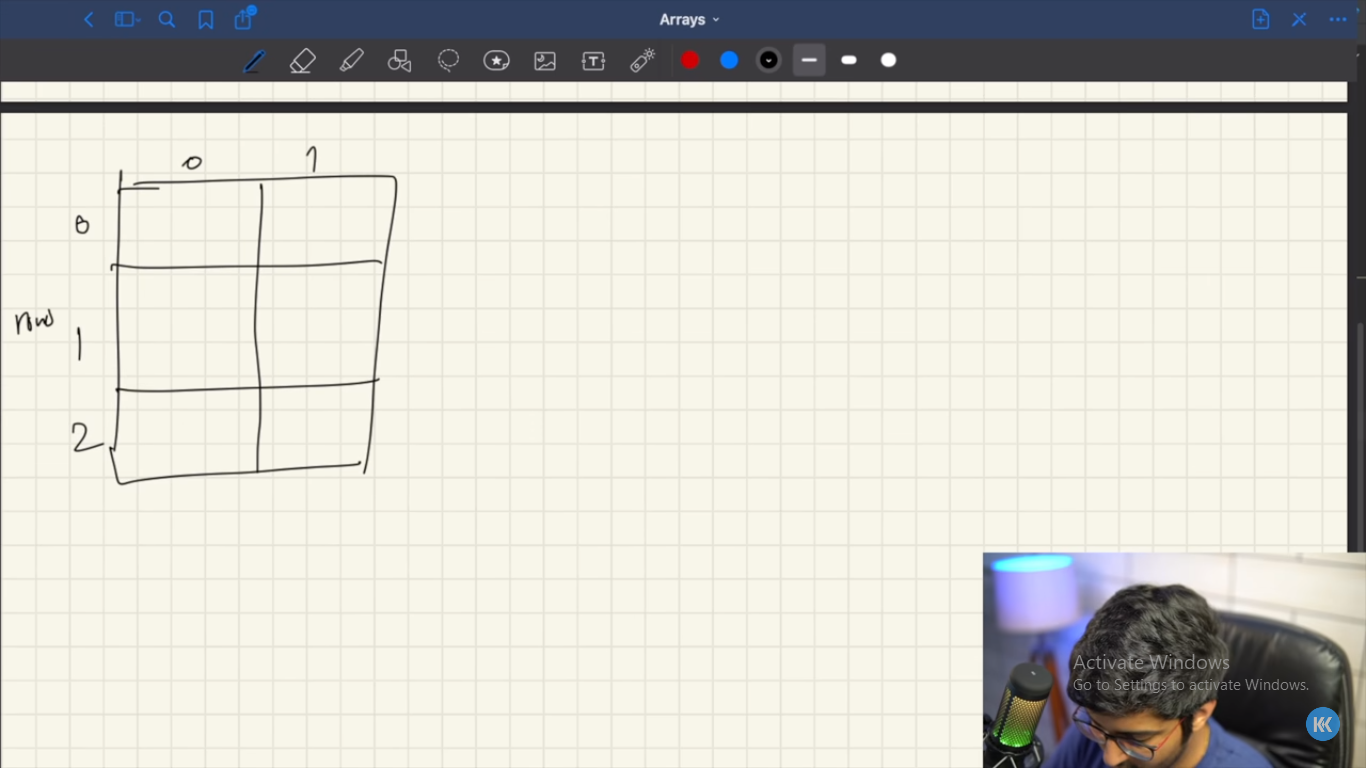 Arrays
0 1
0
row
1
2
Activate Windows
Go to Settings to activate Windows.